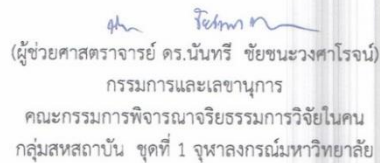 (ผู้ช่วยศาสตราจารย์ ดร.นันทรี ชัยชนะวงศาโรจน์)
กรรมการและเลขานุการ
คณะกรรมการพิจารณาจริยธรรมการวิจัยในคน
กลุ่มสหสถาบัน ชุดที่ 1 จุฬาลงกรณ์มหาวิทยาลัย